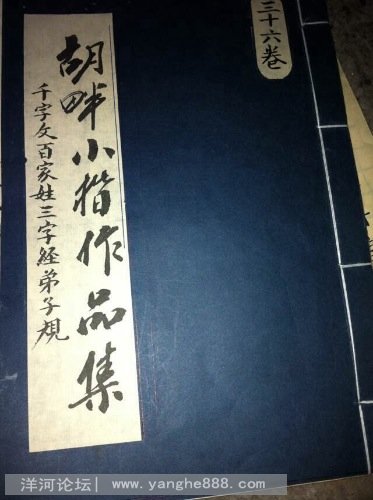 三十六卷
胡畔小楷作品集
千字文百家姓三字经弟子规
洋河论坛| www.yanghe888.com